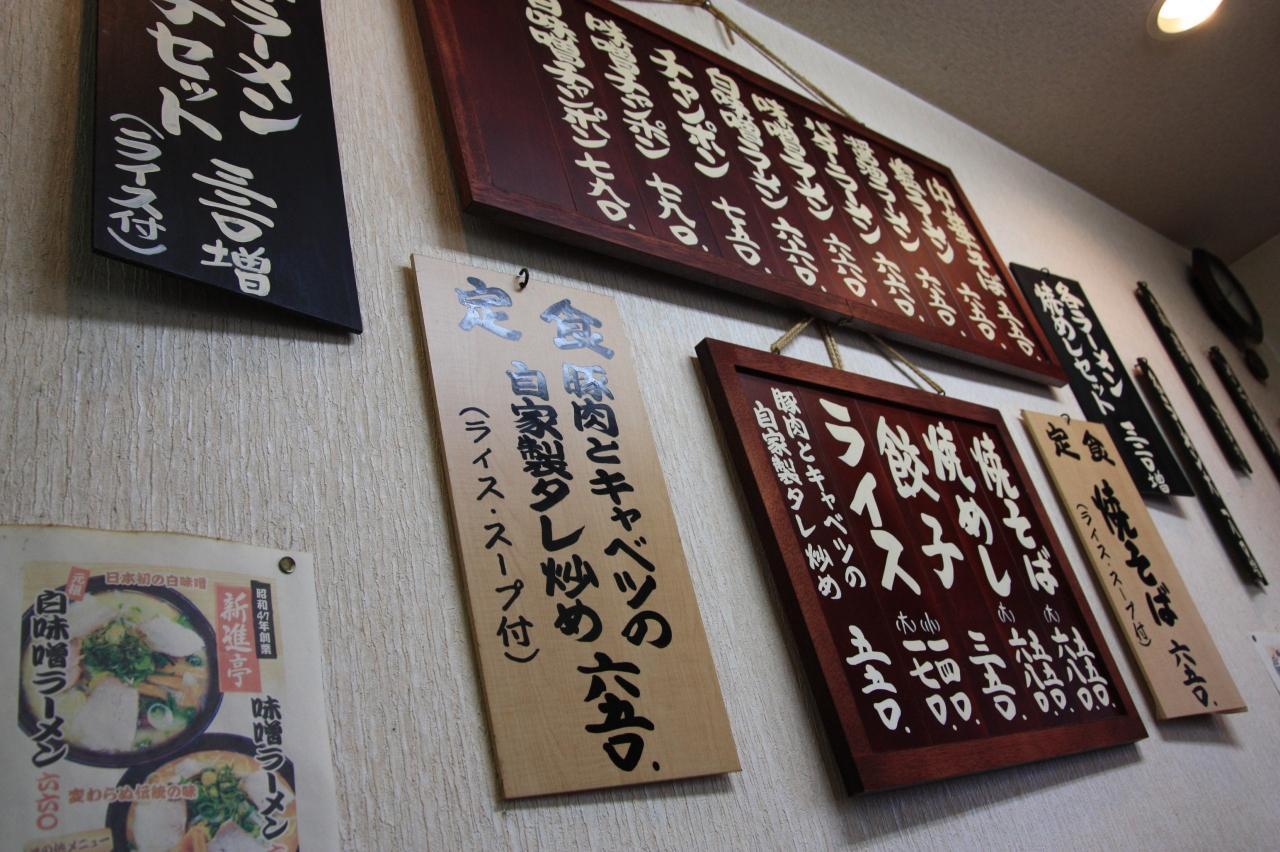 ラーメン
セット
増
(ライス付)
中華そば 五五〇.
ラーメン
ラーメン
バターラーメン
味噌ラーメン
白味噌ラーメン
チャンポン 七五〇.
味噌チャンポン 七九〇.
白味噌チャンポン 七九〇.
定食
豚肉とキャベツの
自家製タレ炒め 六五〇.
(ライス・スープ付)
焼そば 五五〇.
(大) 六八〇.
焼めし 五五〇.
(大)
餃子 三五〇.
ライス (小) 一四〇.
(大) 一七〇.
豚肉とキャベツの
自家製タレ炒め 五五〇.
各ラーメン
焼めしセット
増
定食
焼そば 六五〇.
(ライス・スープ付)
昭和47年創業
新進亭
日本初の白味噌
元祖
白味噌ラーメン
味噌ラーメン
変わらぬ伝統の味